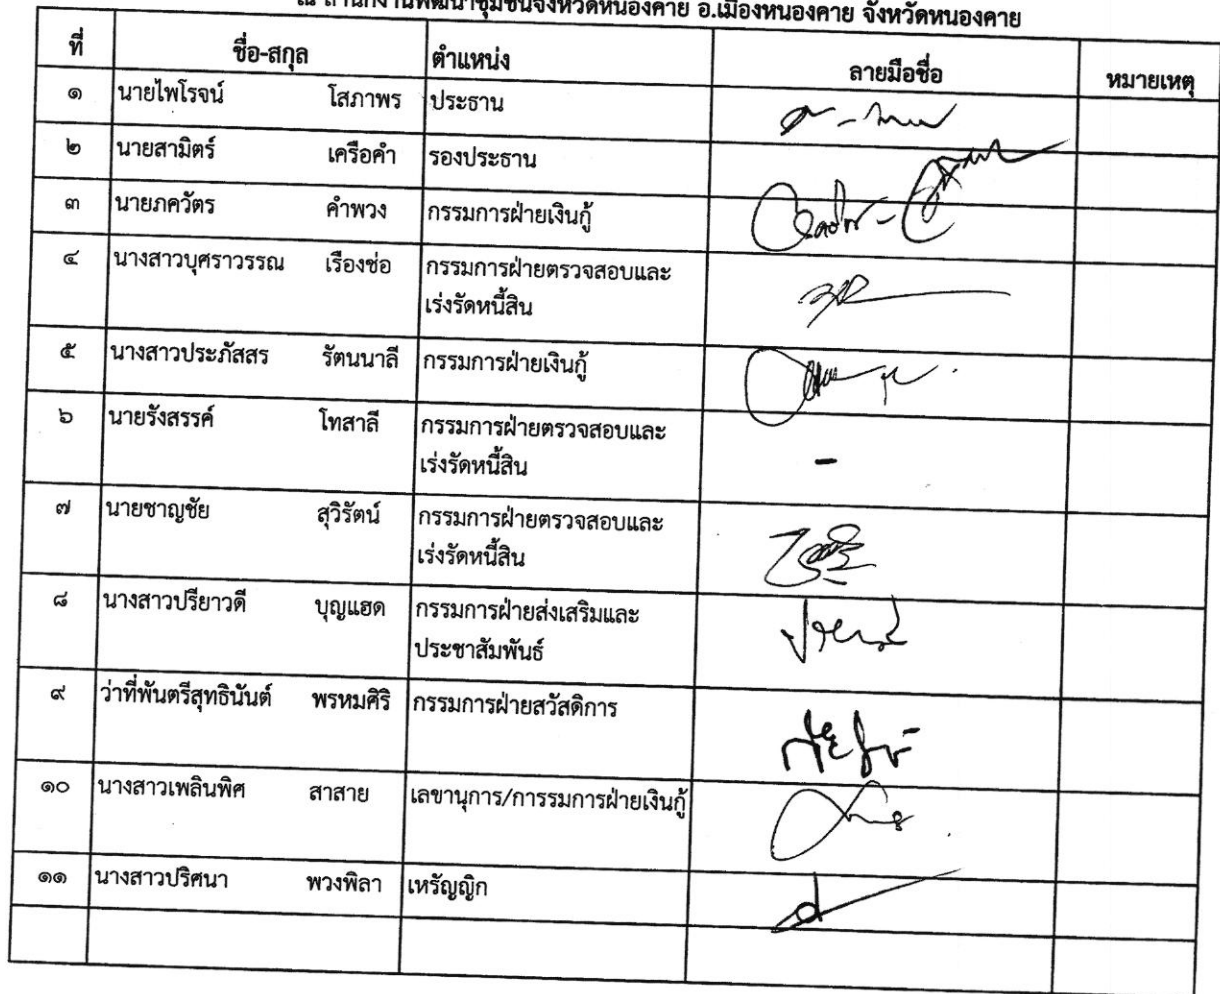 ณ สำนักงานพัฒนาชุมชนจังหวัดหนองคาย อ.เมืองหนองคาย จังหวัดหนองคาย
ที่ ชื่อ-สกุล ตำแหน่ง ลายมือชื่อ หมายเหตุ
๑ นายไพโรจน์ โสภาพร ประธาน
๒ นายสามิตร์ เครือคำ รองประธาน
๓ นายภควัตร คำพวง กรรมการฝ่ายเงินกู้
๔ นางสาวบุศราวรรณ เรืองช่อ กรรมการฝ่ายตรวจสอบและ
เร่งรัดหนี้สิน
๕ นางสาวประภัสสร รัตนนาลี กรรมการฝ่ายเงินกู้
๖ นายรังสรรค์ โทสาลี กรรมการฝ่ายตรวจสอบและ
เร่งรัดหนี้สิน -
๗ นายชาญชัย สุวิรัตน์ กรรมการฝ่ายตรวจสอบและ
เร่งรัดหนี้สิน
๘ นางสาวปรียาวดี บุญแฮด กรรมการฝ่ายส่งเสริมและ
ประชาสัมพันธ์
๙ ว่าที่พันตรีสุทธินันต์ พรหมศิริ กรรมการฝ่ายสวัสดิการ
๑๐ นางสาวเพลินพิศ สาสาย เลขานุการ/การรมการฝ่ายเงินกู้
๑๑ นางสาวปริศนา พวงพิลา เหรัญญิก